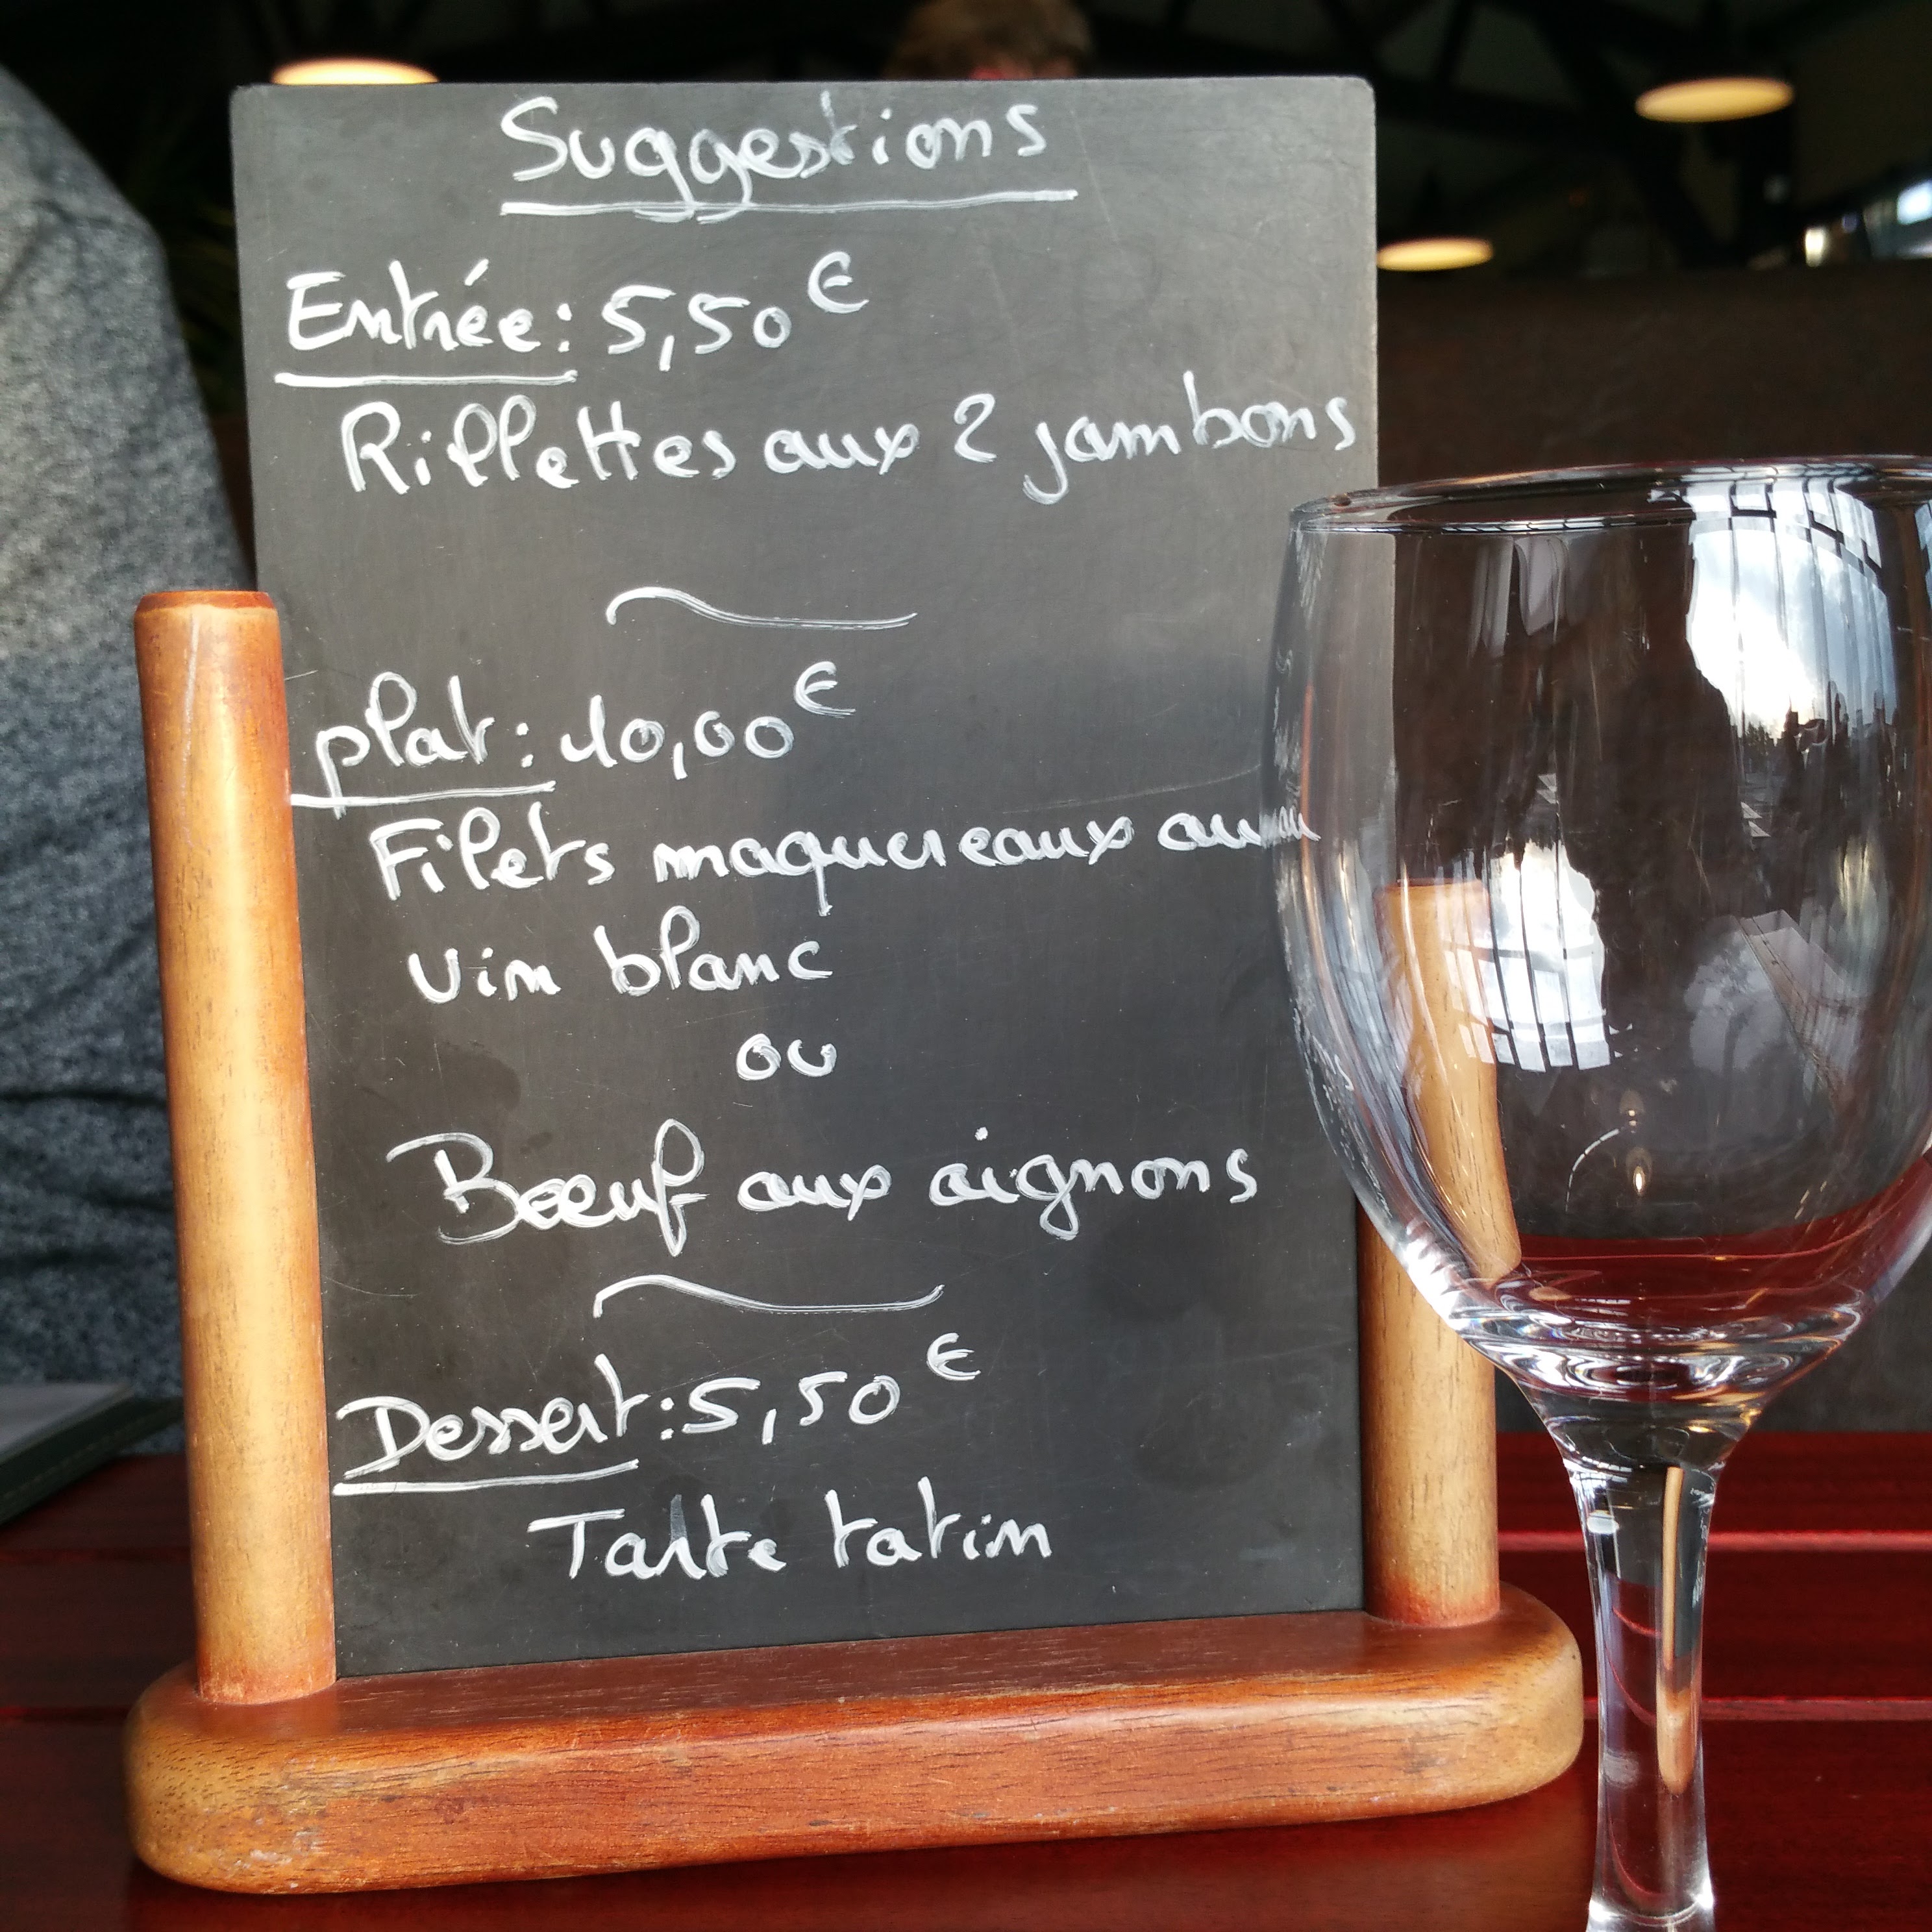 Suggestions
Entrée: 5,50€
Rillettes aux 2 jambons
plat: 10,00€
Filets maquereaux au
vin blanc
ou
Boeuf aux oignons
Dessert: 5,50€
Tarte tatin